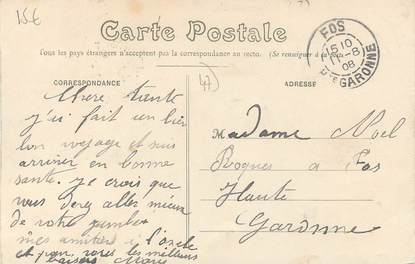 15€
Carte Postale
Tous les pays étrangers n'acceptent pas la correspondance au recto. (Se renseigner à la
CORRESPONDANCE
ADRESSE
FOS
15 10
11-8
08
Hte GARONNE
Chere tante
j'ai fait un bien
bon voyage et suis
arriver en bonne
sante. je crois que
vous serez aller mieux
de votre jambe
mes amitiés à l'oncle
et pour vous les meilleurs
baisers Marie
Madame Noel
Roques a Fos
Haute
Garonne